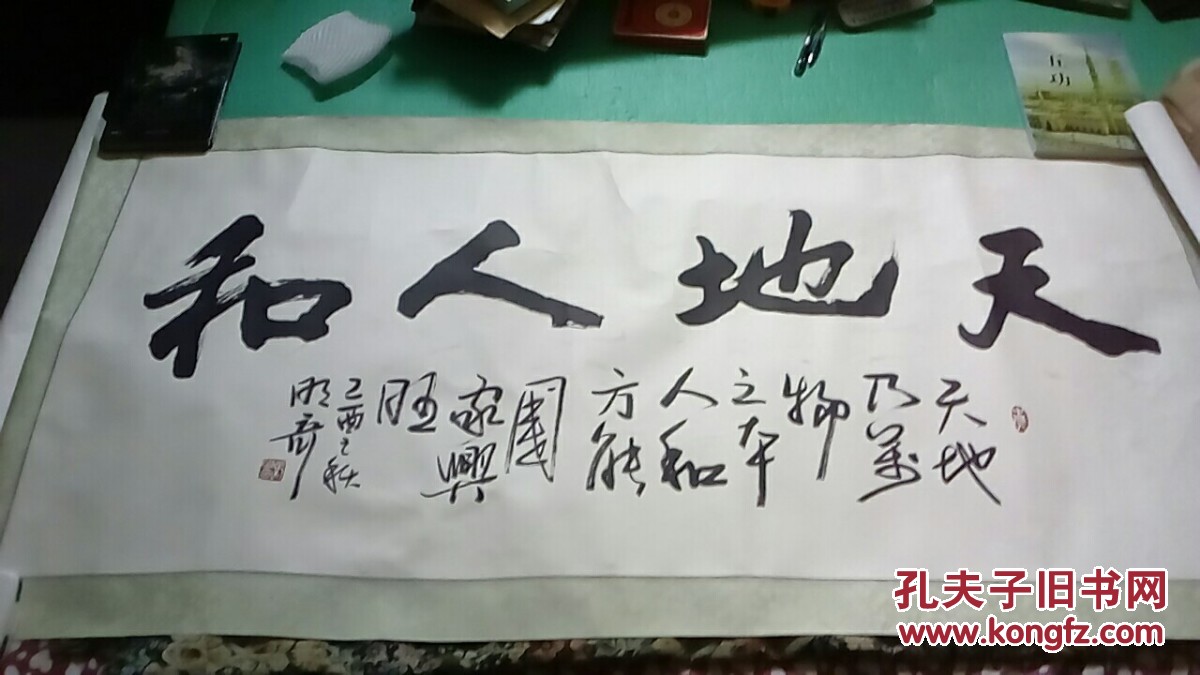 天地人和
天地
乃萬
物
之本
人和
方能
國
家興
旺
乙酉之秋
五功
孔夫子旧书网
www.kongfz.com